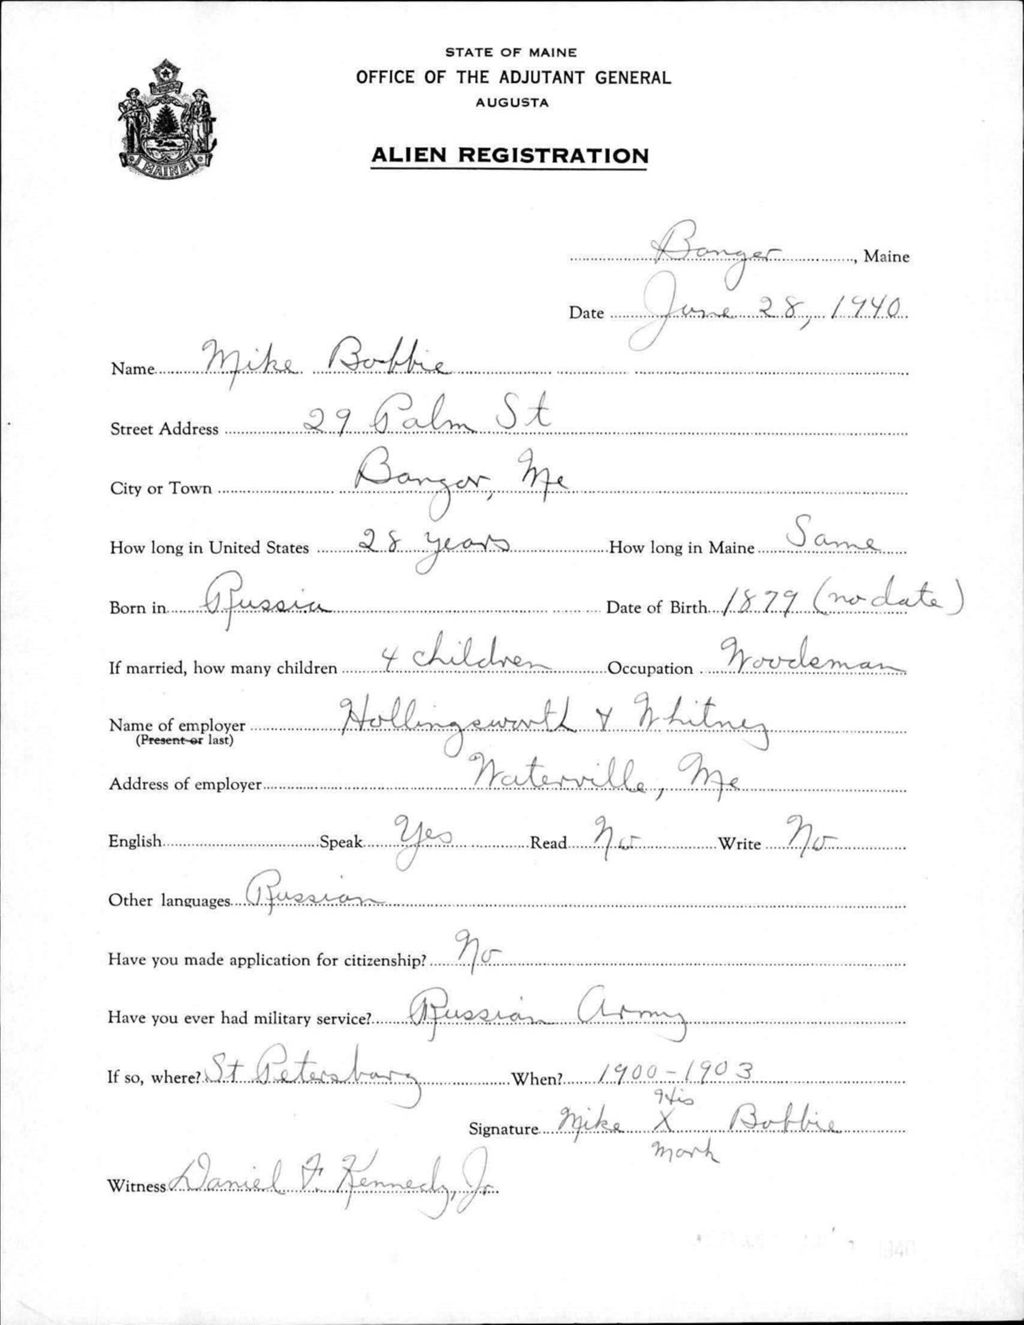 STATE OF MAINE
OFFICE OF THE ADJUTANT GENERAL
AUGUSTA
ALIEN REGISTRATION
MAINE
Bangor, Maine
Date June 28, 1940
Name Mike Bobbie
Street Address 29 Palm St
City or Town Bangor, Me
How long in United States 28 years How long in Maine Same
Born in Russia Date of Birth 1879 (no date)
If married, how many children 4 children Occupation Woodsman
Name of employer Hollingsworth & Whitney
(Present or last)
Address of employer Waterville, Me
English Speak Yes Read No Write No
Other languages Russian
Have you made application for citizenship? No
Have you ever had military service? Russian Army
If so, where? St Petersburg When? 1900-1903
His
Signature Mike X Bobbie
Mark
Witness Daniel F. Kennedy, Jr.
1940